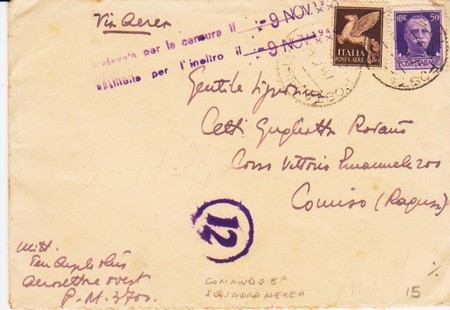 Via Aerea
per la censura il 9 NOV.
per l'inoltro il 9 NOV. 194
ITALIA
POSTA AEREA
50
Gentile Signorina
Cetti Guglietta
Corso Vittorio Emanuele 200
Comiso (Ragusa)
12
Mitt.
Ten.
Aerosettore ovest
P.M. 3700.
COMANDO 5ª
SQUADRA AEREA
15